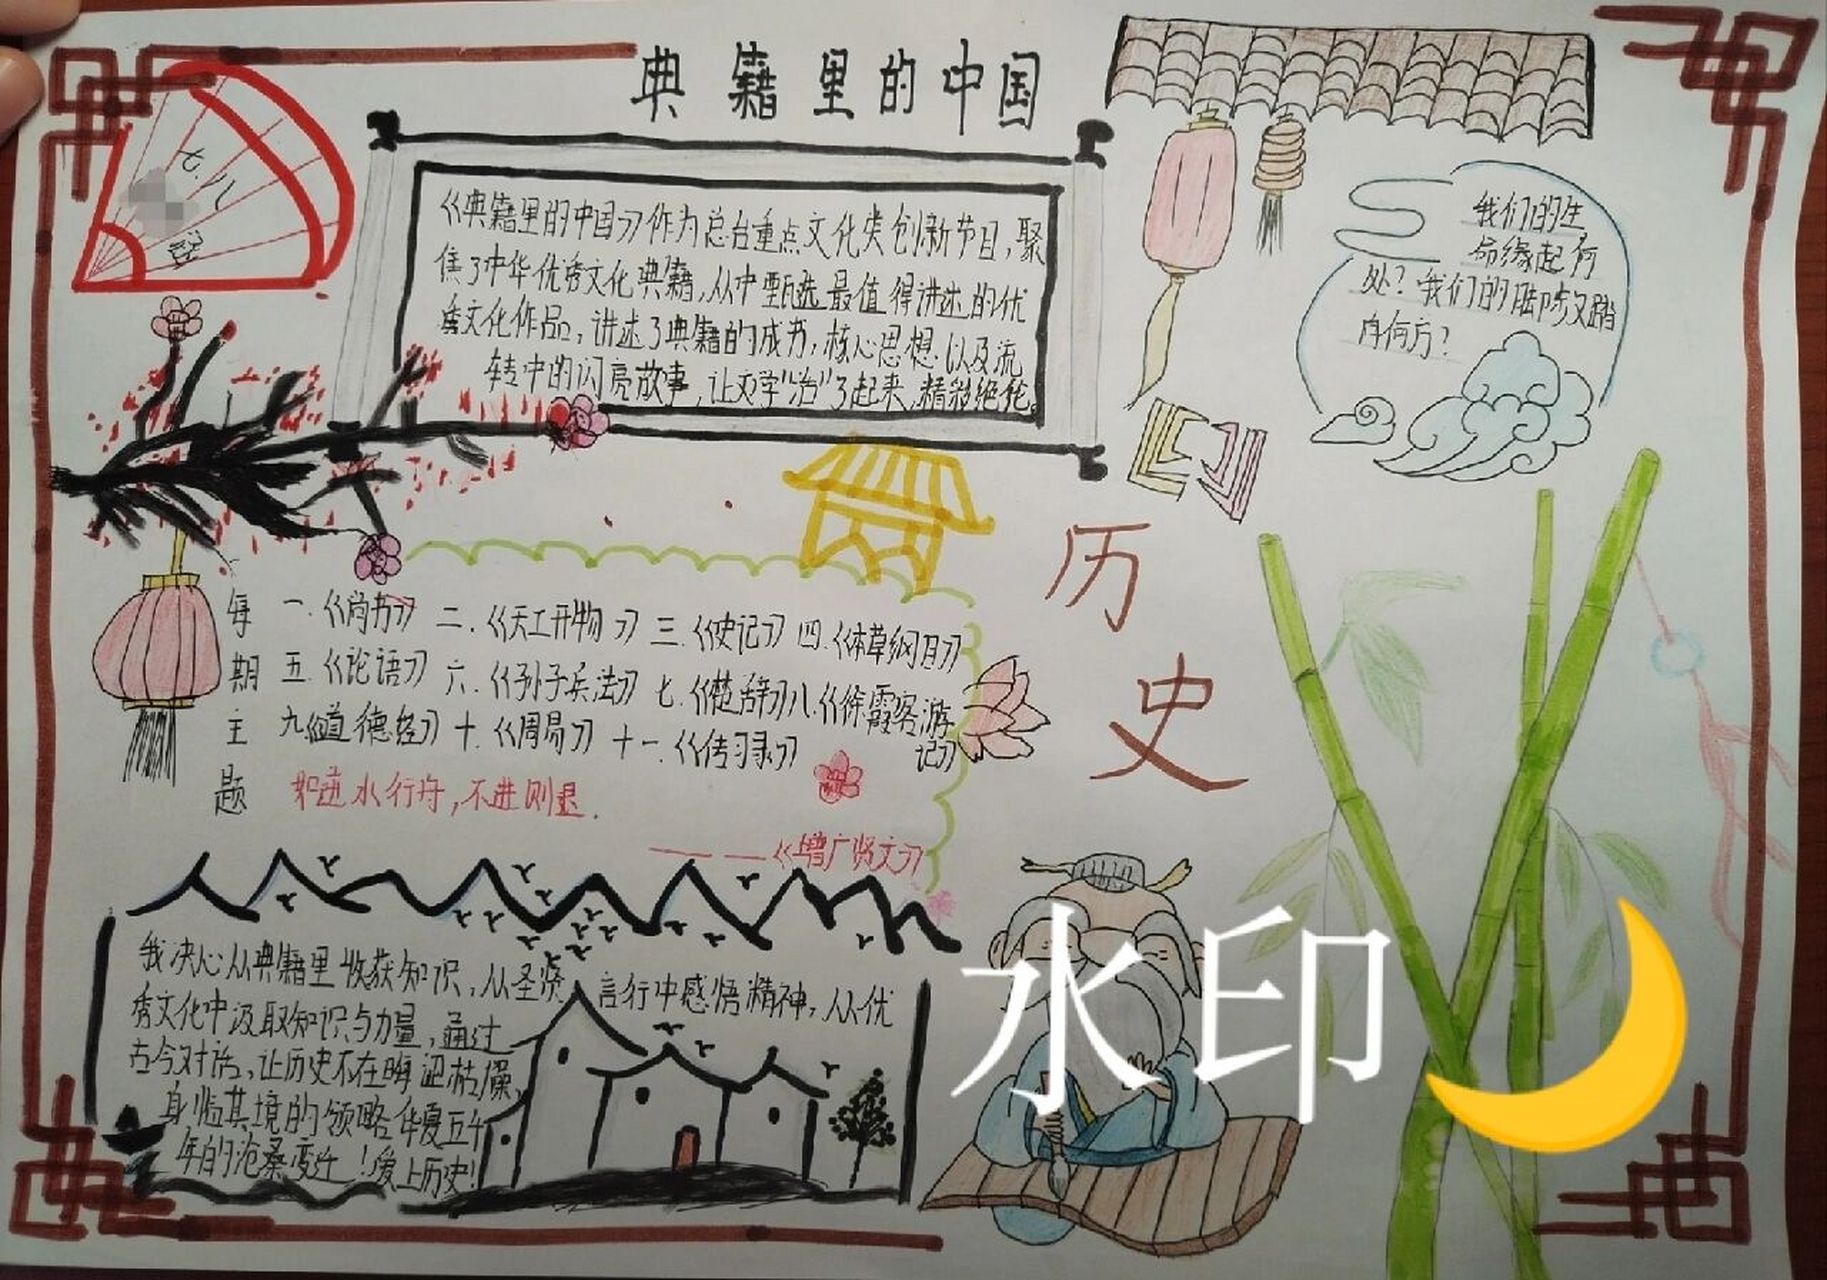 典籍里的中国
七.八
《典籍里的中国》作为总台重点文化类创新节目，聚
焦了中华优秀文化典籍，从中甄选最值得讲述的优
秀文化作品，讲述了典籍的成书，核心思想以及流
转中的闪亮故事，让文字“活”了起来，精彩绝伦。
我们的生
命缘起何
处？我们的脚步又踏
向何方？
历
史
每期主题
一.《尚书》 二.《天工开物》 三.《史记》 四.《本草纲目》
五.《论语》 六.《孙子兵法》 七.《楚辞》八.《徐霞客游
记》
九《道德经》 十.《周易》 十一.《传习录》
如逆水行舟，不进则退.
———《增广贤文》
我决心从典籍里收获知识，从圣贤言行中感悟精神，从优
秀文化中汲取知识与力量，通过
古今对话，让历史不在晦涩枯燥，
身临其境的领略华夏五千
年的沧桑变迁！爱上历史！
水印